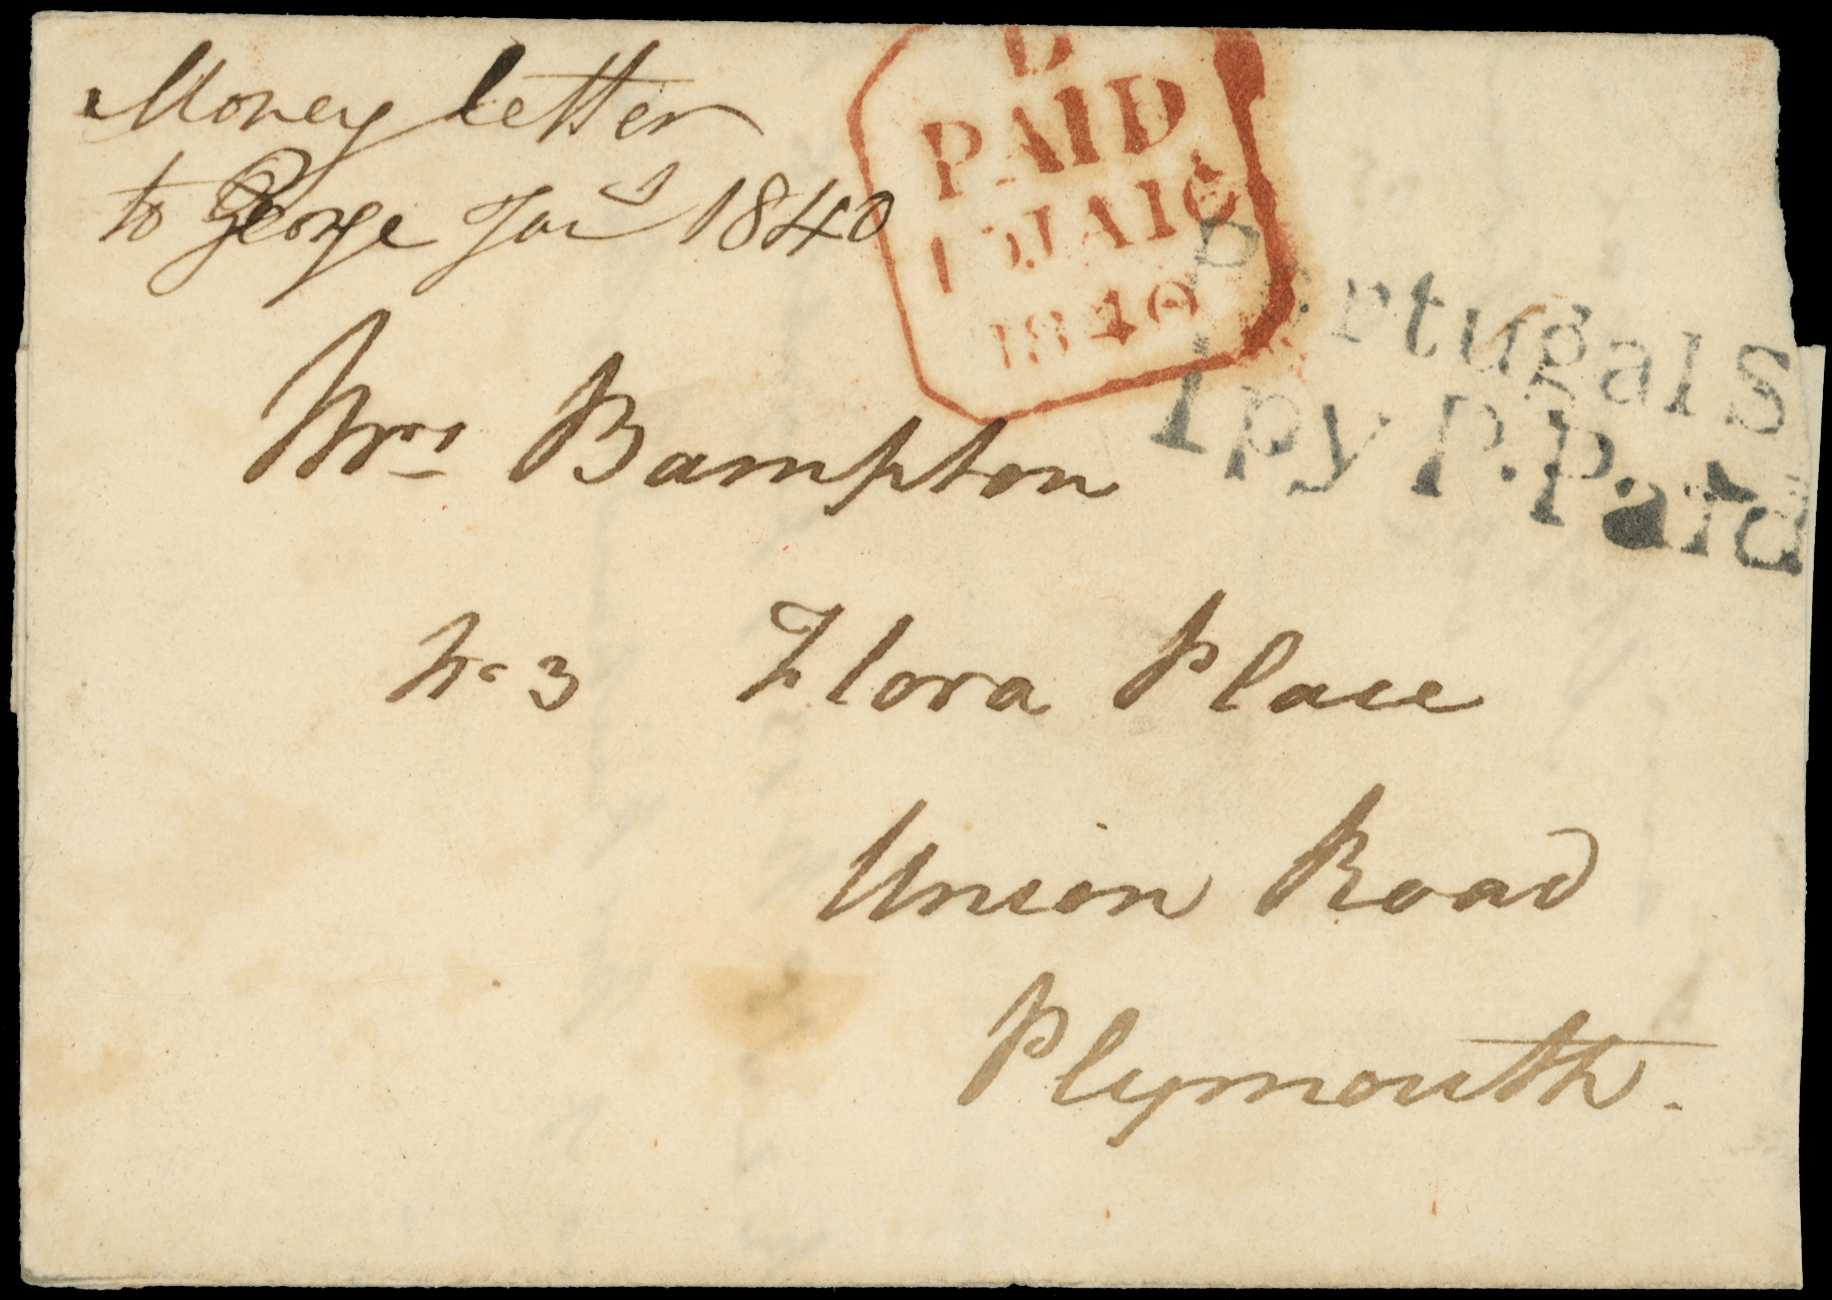 Money letter
to George Jany 1840
D
PAID
10 JA 10
1840
Portugal S
1py P. Paid
Mrs Bampton
No 3 Flora Place
Union Road
Plymouth.